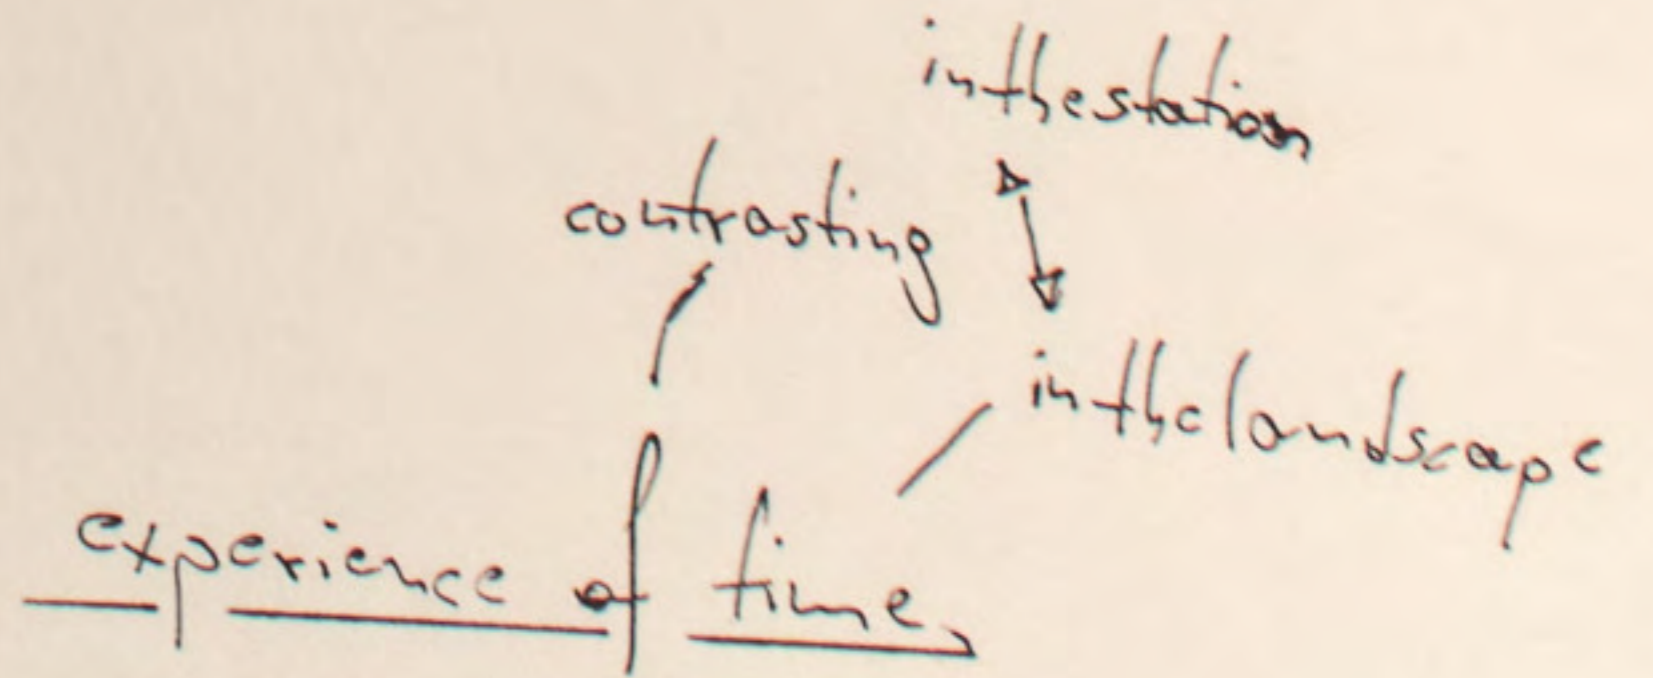 in the station
contrasting
in the landscape
experience of time,